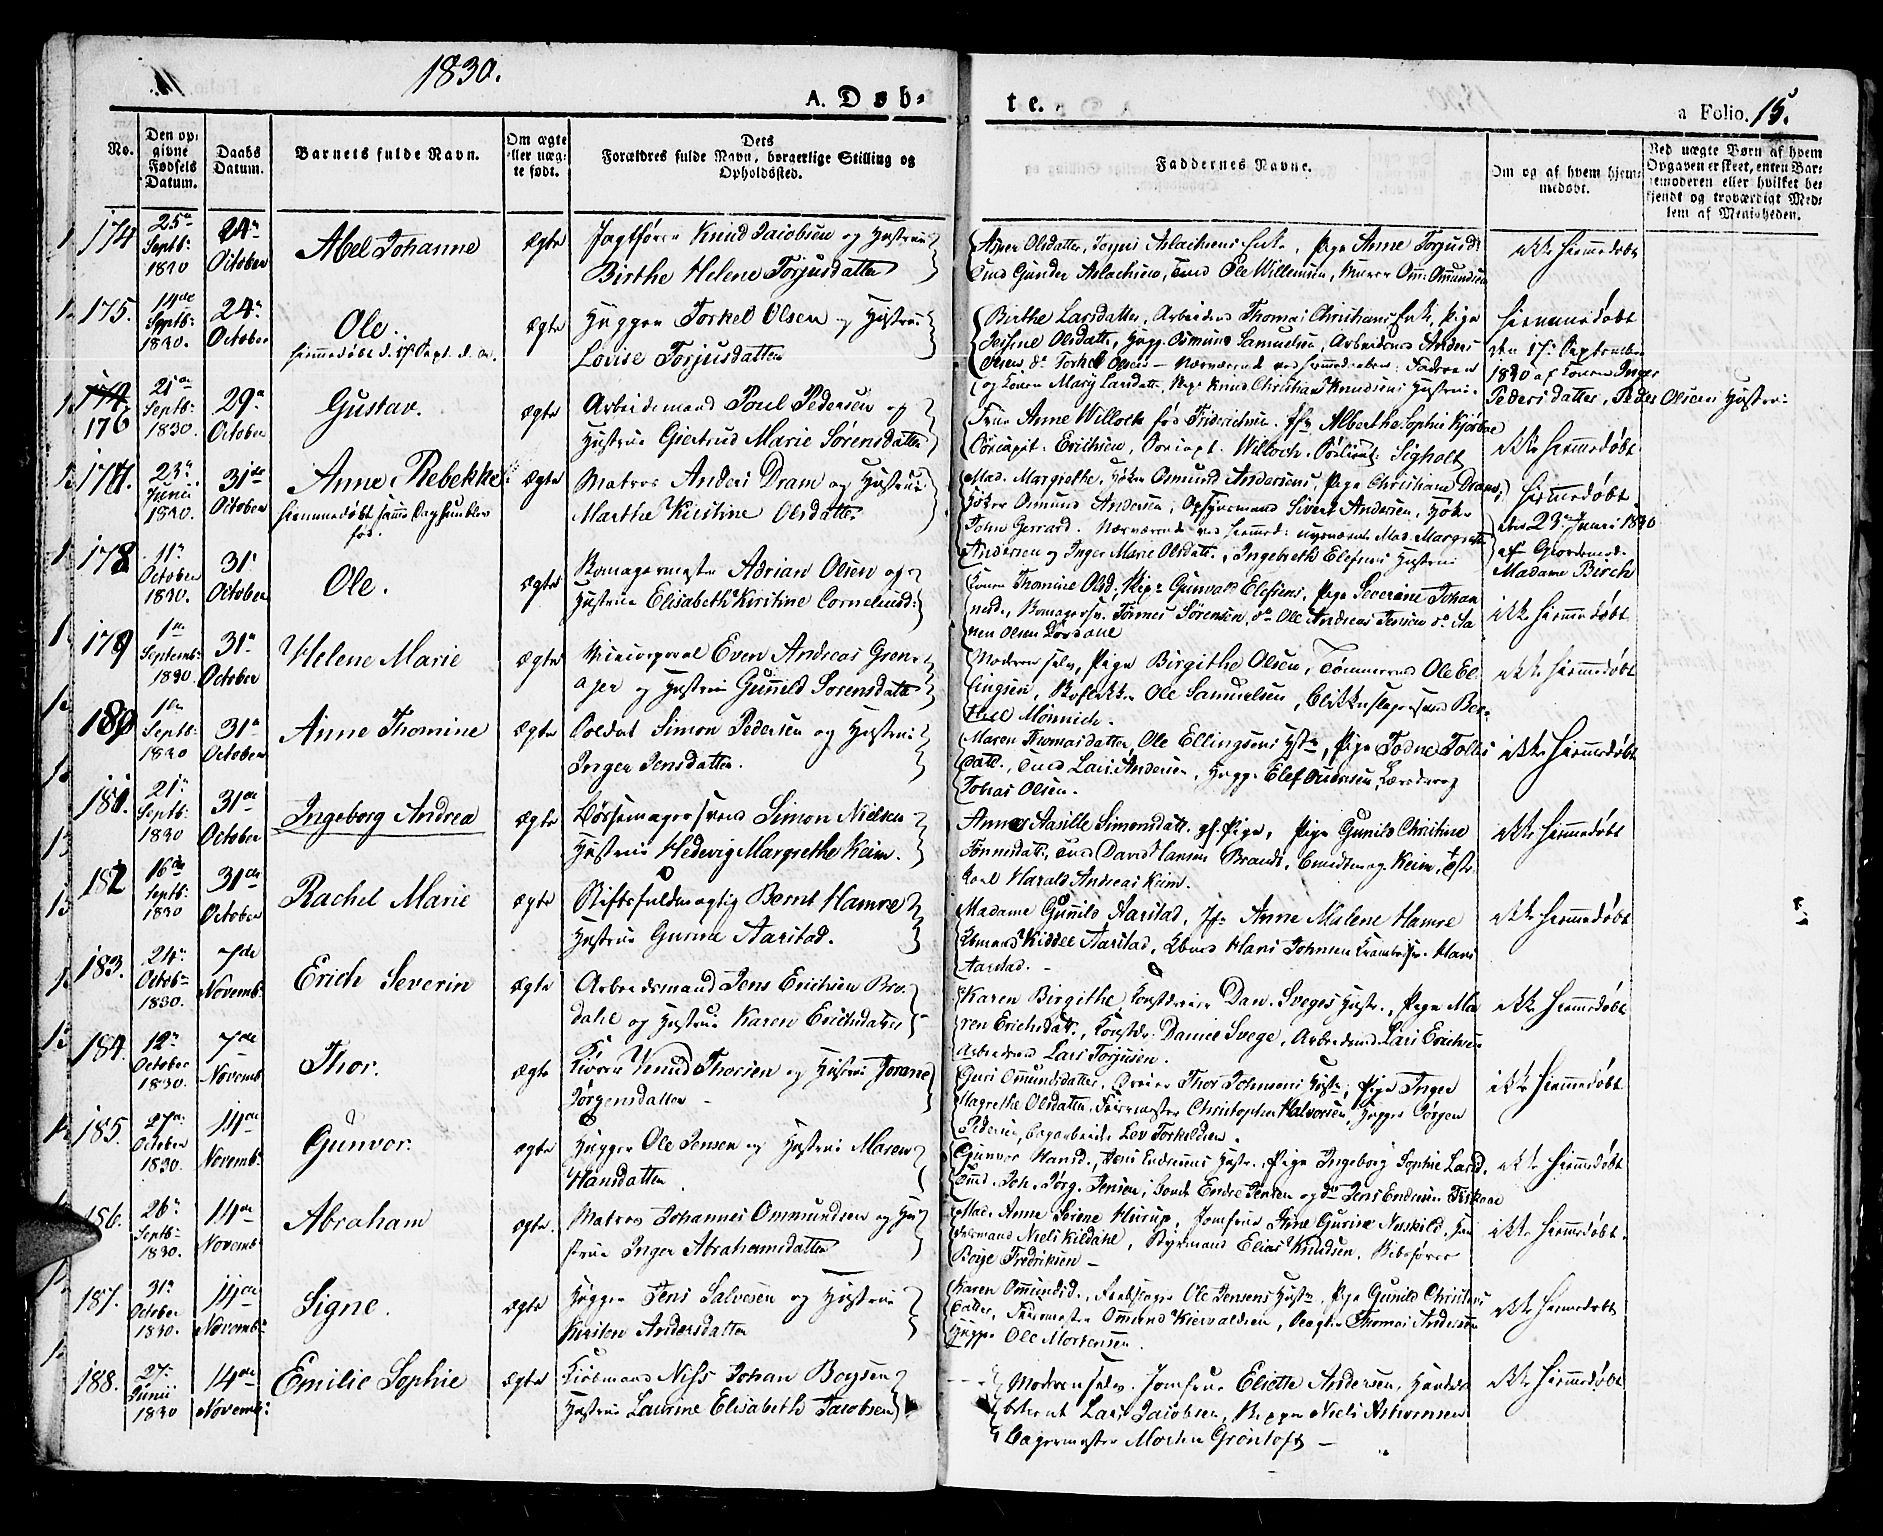 1830.
A. Døb-
te.
a Folio. 15.
No.
Den op-
givne
Fødsels
Datum.
Daabs
Datum.
Barnets fulde Navn.
Om ægte
eller uæg-
te født.
Dets
Forældres fulde Navn, borgerlige Stilling og
Opholdssted.
Faddernes Navne.
Om og af hvem hjem-
medøbt.
Ved uægte Børn af hvem
Opgaven er skeet, enten Bar-
nemoderen eller hvilket be-
kjendt og troværdigt Med-
lem af Menigheden.
174 25de Septb: 1830 24de October Abel Johanne ægte
Knud Jacobsen og Hustrue
Birthe Helene Torjusdatter
Anne Torjusd:
Gunder Aslachsen, Ole Willemsen, Omundsen
ikke hjemmedøbt
175. 14de Septb: 1830. 24de October Ole. ægte
hjemmedøbt d. 17 Sept. d. A.
Hugger Torkel Olsen og Hustrue
Lovise Torjusdatter
Birthe Larsdatter, Arbeidsmd Thomas Christians Enke, Pige
Olsdatter, Hugg. Osmund Samuelsen, Arbeidsmd Anders
Olsen, do Torkel Olsen - Nærværende ved Hjemmedaaben: Faderen
og Konen Mary Larsdatter, Knud Christian Knudsens Hustrue.
hjemmedøbt
den 17de September
1830 af Konen Inger
Pedersdatter, Peder Olsens Hustrue
176 21de Septb: 1830. 29de October Gustav. ægte
Arbeidsmand Poul Pedersen og
Hustrue Giertrud Marie Sørensdatter
Frue Anne Willoch fød Fridrichsen, Jfr Alberthe Sophie Kjørboe
Erichsen, Willoch, Sigholt
ikke hjemmedøbt
177. 23de Junii 1830. 31de October Anne Rebekke ægte
hjemmedøbt samme Dag hun blev
fød.
Matros Anders Dram og Hustrue
Marthe Kirstine Olsdatter
Mad. Margrethe, Høker Osmund Andersens, Pige Christiane Dram,
Høker Osmund Andersen, Opsynsmand Sivert Andersen, Høker
John Gerrard. Nærværende ved Hjemmed: Mad. Margrethe
Andersen og Inger Marie Olsdatt., Ingebreth Elefsens Hustrue
hjemmedøbt
den 23de Junii 1830
af Giordemod.
Madame Birch
178 11te October 1830. 31te October Ole. ægte
Adrian Olsen og
Hustrue Elisabeth Kirstine Corneliusd:
Konen Thomine Olsd., Gunvald Elefsens, Pige Severine Johan
Tønnes Sørensen, do Ole Andreas Jensen, do
Olsen
ikke hjemmedøbt
179 1ste Septemb: 1830. 31te October Helene Marie ægte
Even Andreas Gren-
ager og Hustrue Gunnild Sørensdatter
Moderen selv, Pige Birgithe Olsen, Tømmermd Ole El-
lingsen, Ole Samuelsen, Blikkenslagersvend Ber-
thel Mønnich.
ikke hjemmedøbt
180 1ste Septb: 1830 31te October Anne Thomine ægte
Soldat Simon Pedersen og Hustrue
Inger Jensdatter.
Maren Thomasdatter, Ole Ellingsens Hstr, Pige Todne Tolles
datt., Lars Andersen, Hugger Elef Gudersen,
Tobias Olsen.
ikke hjemmedøbt
181. 21de Septb: 1830 31te October Ingeborg Andrea ægte
Bøssemagersvend Simon Nielsen
Hustrue Hedevig Margrethe Keim.
Anne Aasille Simonsdatt. gl. Pige, Pige Gunild Christine
Tønnesdatt., David Hansen Brandt, Smedesvend Keim,
Carl Harald Andreas Keim.
ikke hjemmedøbt
182 16de Septb: 1830 31te October Rachel Marie ægte
Stiftsfuldmægtig Bernt Hamre
Hustrue Gurine Aarstad.
Madame Gunild Aarstad, Jfr Anne Malene Hamre
Kbmand Kiddel Aarstad, Hans Johnsen, Hans
Aarstad.
ikke hjemmedøbt
183. 24de Octob: 1830. 7de Novemb: Erich Severin ægte
Arbeidsmand Jens Erichsen Bro-
dahl og Hustrue Karen Erichsdatter
Karen Birgithe, Dan. Sveges Hustr., Pige Ma-
ren Erichsdatt., Daniel Svege, Arbeidsmd Lars Erichsen
Arbeidsmd Lars Torjusen.
ikke hjemmedøbt
184. 12te October 1830. 7de Novemb: Thor. ægte
Knud Thorsen og Hustrue Jorane
Jørgensdatter
Guri Omundsdatter, Thor Johnsens Hustr., Pige Inger
Magrethe Olsdatter, Christopher Halvorsen, Hugger Jørgen
Pedersen, Dagarbeider Lev Torkeldsen.
ikke hjemmedøbt
185. 27de October 1830. 14de Novemb: Gunvor. ægte
Hugger Ole Jensen og Hustrue Maren
Hansdatter
Gunvor Hansd., Jens Endresens Hustr., Pige Ingeborg Sophie Larsd.
Joh. Jørg. Jensen, Bonde Endre Jensen og do Jens Endresen Fiskaae
ikke hjemmedøbt
186. 26de Septb: 1830. 14de Novemb: Abraham ægte.
Matros Johannes Ommundsen og Hu-
strue Inger Abrahamsdatter
Mad. Anne Serene Hurup, Jomfrue Gurine Neskild,
Niels Kildahl, Styrmand Elias Knudsen,
Børge Fredriksen
ikke hjemmedøbt.
187. 31te October 1830. 14de Novemb: Signe. ægte
Hugger Jens Salvesen og Hustrue
Kirsten Andersdatter
Karen Ommundsd., Ole Jensens Hustr, Pige Gunild Christens
datter, Omund Kiervaldsen, Thomas Andersen
Hugger Ole Mortensen.
ikke hjemmedøbt
188. 27de Junii 1830 14de Novemb: Emilie Sophie ægte
Kiøbmand Niss Johan Boysen
Hustrue Laurine Elisabeth Jacobsen
Moderen selv. Jomfrue Eliette Andersen, Handels
betient Lars Jacobsen, Niels Asbiørnsen
Bagermester Morten Grøntoft
ikke hjemmedøbt